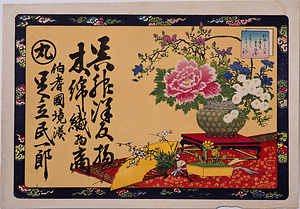 呉服洋反物
木綿織物商
丸
伯耆國境港
足立民一郎